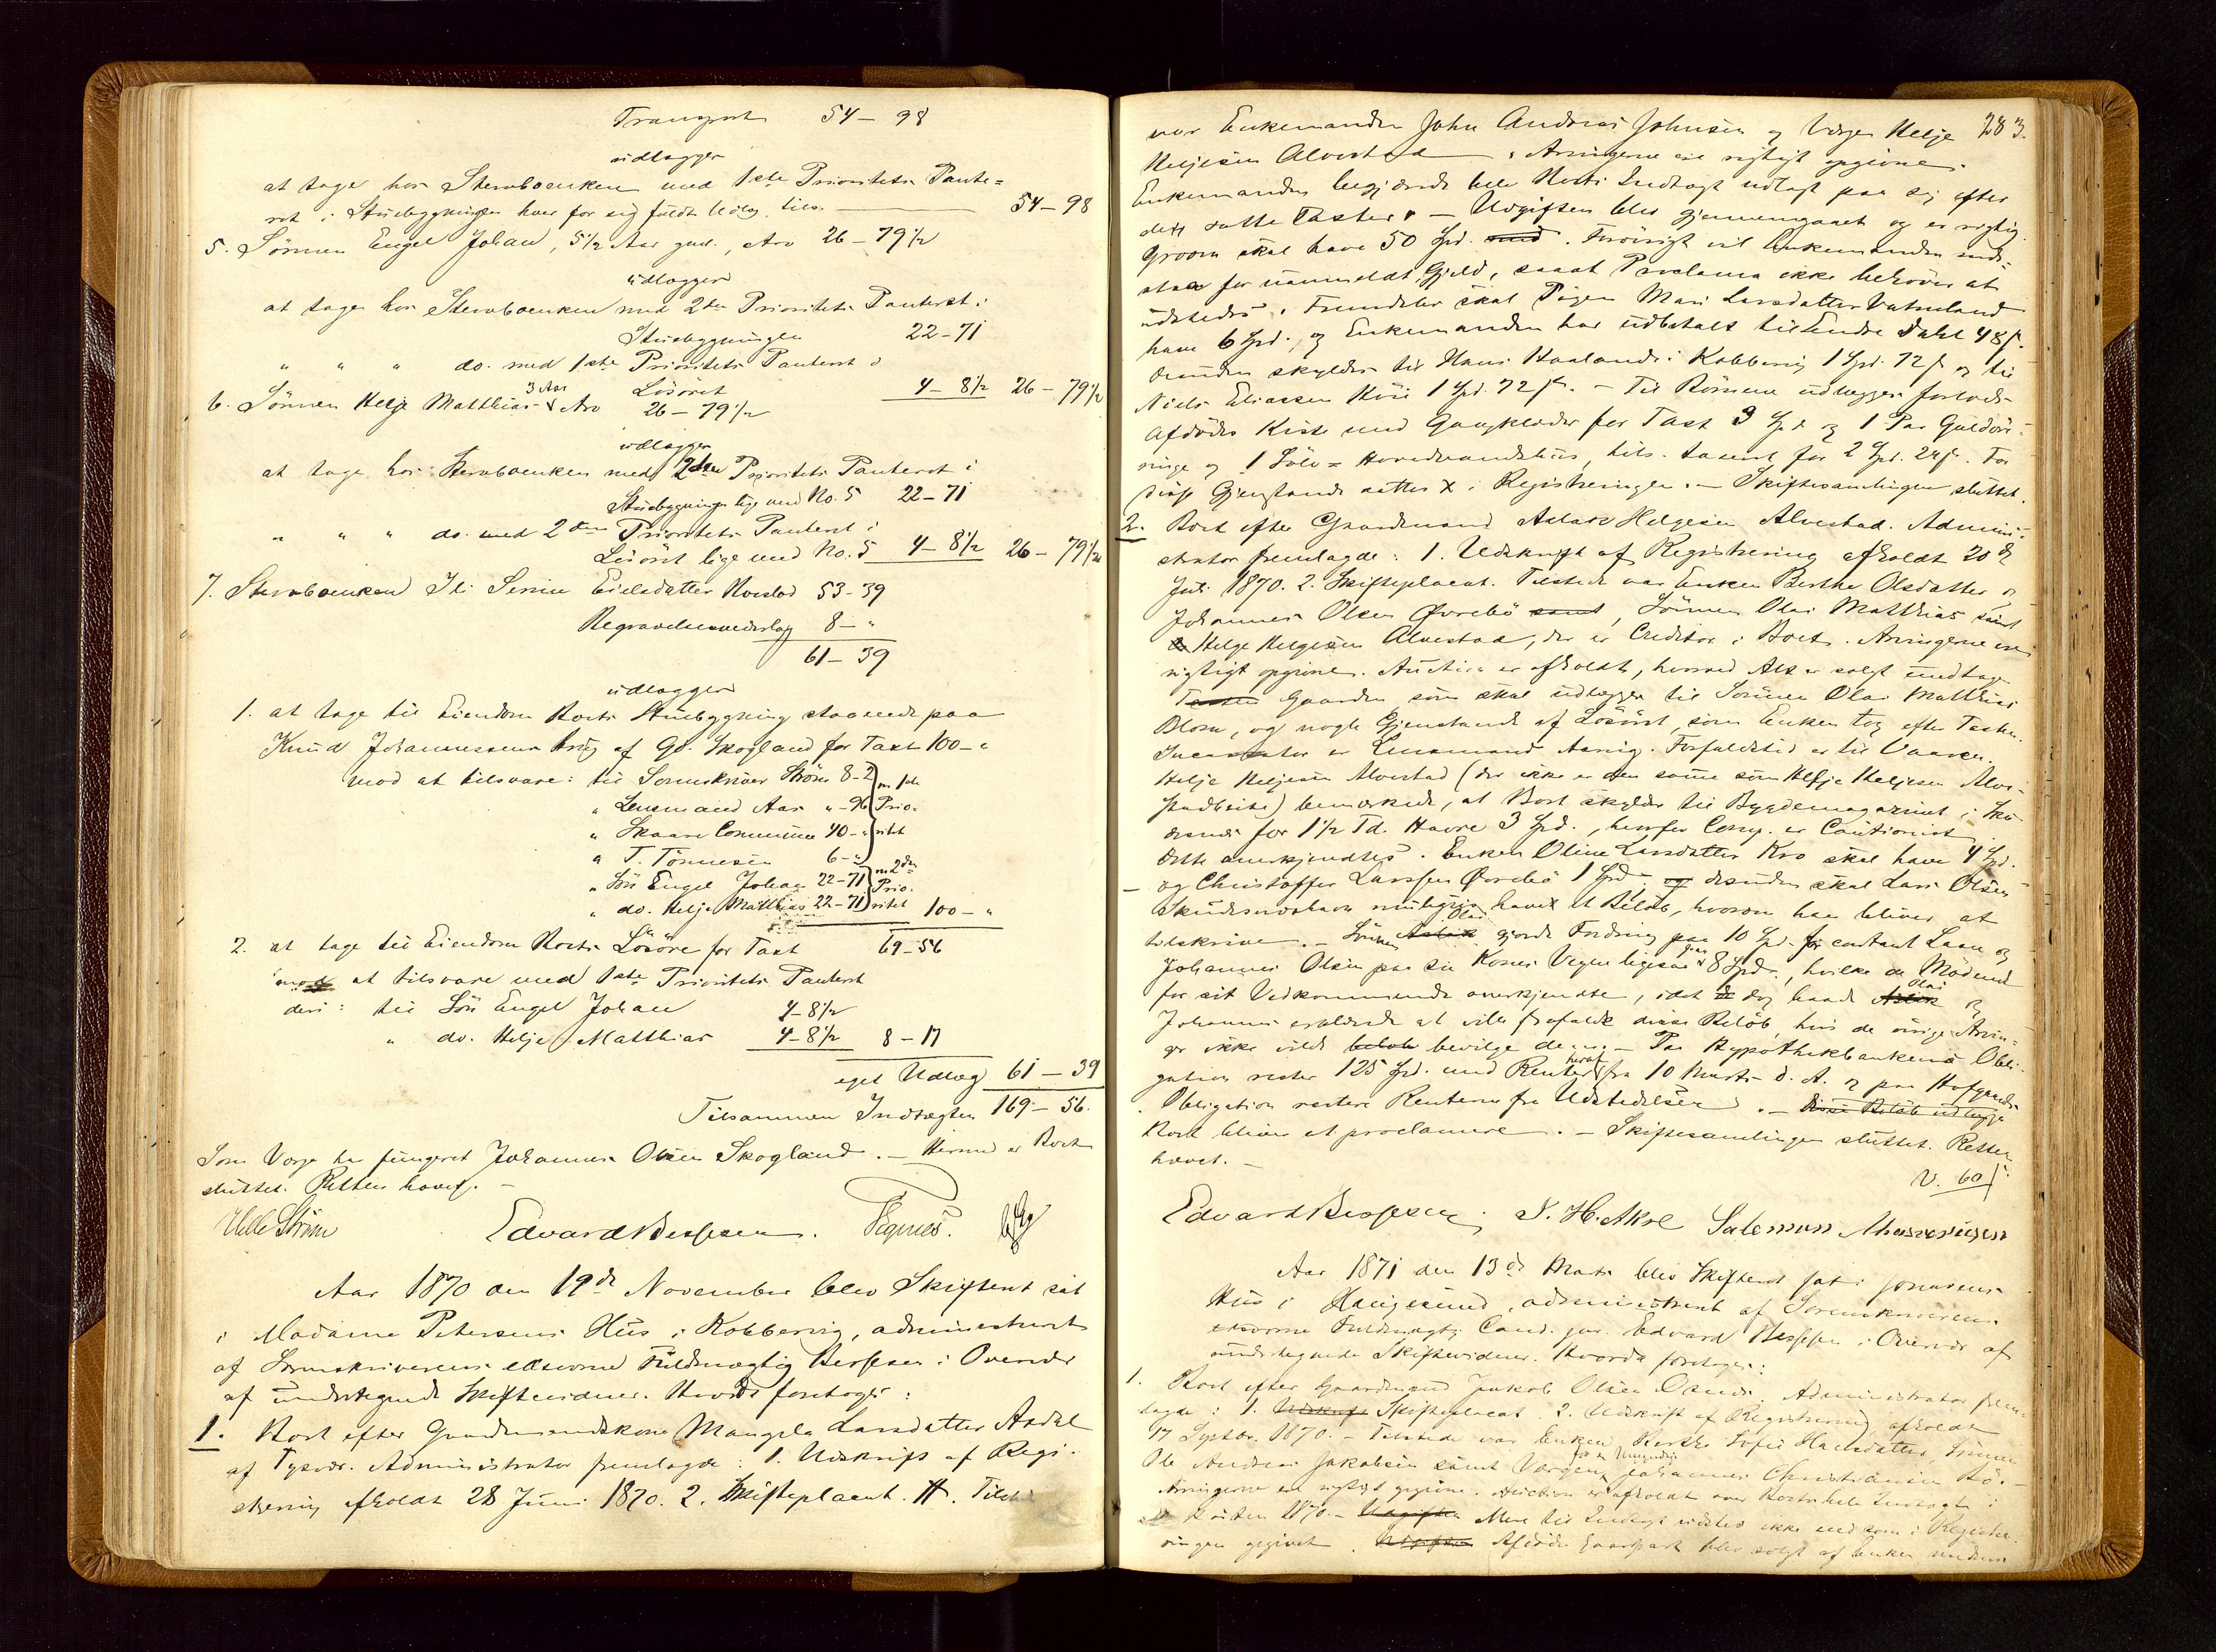 Transport 54 – 98
udlægges
at tage hos Stervboenken med 1ste Prioritets Pante=
ret i Stuebygningen hver for sig fuldt Udlæg, tils. 54 – 98
5. Sønnen Engel Johan, 5½ Aar gml., Arv 26 – 79½
udlægges
at tage hos Stervboenken med 2den Prioritets Panteret i
Stuebygningen 22 – 71
" " " do. med 1ste Prioritets Panteret i
Løsøret 4 – 8½ 26 – 79½
6. Sønnen Helje Matthias 3 Aar Arv 26 – 79½
udlægges
at tage hos Stervboenken med 2den Prioritets Panteret i
Stuebygningen lige med No. 5 22 – 71
" " " do. med 2den Prioritets Panteret i
Løsøret lige med No. 5 4 – 8½ 26 – 79½
7. Stervboenken Eielsdatter 53 – 39
Begravelsesvederlag 8 – "
61 – 39
udlægges
1. at tage til Eiendom Boets Stuebygning staaende paa
Knud Johannessens Brug af Gd. Skogland for Taxt 100 – "
mod at tilsvare: til Sorenskriver Strøm 8 – 2 m 1ste
" Lensmand Aar " – 96 Prio=
" Skaare Commune 40 – " ritet
" T. Tønnesen 6 – "
" Søn Engel Johan 22 – 71 m 2den Prio=
" do. Helje Matthias 22 – 71 ritet 100 – "
2. at tage til Eiendom Boets Løsøre for Taxt 69 – 56
mod at tilsvare med 1ste Prioritets Panteret
deri: til Søn Engel Johan 4 – 8½
" do. Helje Matthias 4 – 8½ 8 – 17
eget Udlæg 61 – 39
Tilsammen Indtægten 169 – 56.
Som Værge har fungeret Johannes Olsen Skogland. – Hermed er Boet
sluttet. Retten hævet. –
Strøm Edvard Bessesen.
Aar 1870 den 19de November blev Skifteret sat
i Madame Petersens Hus i Kobbervig, administreret
af Sorenskriverens edsvorne Fuldmægtig Bessesen i Overvær
af undertegnede Skiftevidner. Hvorda foretoges:
1. Boet efter Gaardmandskone Mangela Larsdatter Aadal
af Tysvær. Administrator fremlagde: 1. Udskrift af Regi=
strering afholdt 28 Juni 1870. 2. Skifteplacat. Tilstede
283.
var Enkemanden John Andreas Johnsen og Værgen Helje
Heljesen Alvestad. Arvingerne ere rigtigt opgivne.
Enkemanden begjærede hele Boets Indtægt udlagt paa sig efter
den satte Taxter. – Udgiften blev gjennemgaaet og er rigtig.
skal have 50 Spd. med. Forøvrigt vil Enkemanden inde=
staa for uanmeldt Gjeld, saaat Proclama ikke behøver at
udstedes. Fremdeles skal Pigen Mari Larsdatter Vatneland
have 6 Spd., og Enkemanden har udbetalt til Endre Dahl 48 s.
desuden skyldes til Hans Haaland i Kobbervig 1 Spd. 72 s og til
Niels Eliassen 1 Spd. 72 s. – Til Børnene udlægges forlods
Afdødes Kiste med Gangklæder for Taxt 3 Spd. og 1 Par Guldøre=
ringe og 1 Sølv= Hovedvandshus, tils. taxeret for 2 Spd. 24 s. For
disse Gjenstande sættes X i Registreringen. – Skiftesamlingen sluttet.
2. Boet efter Gaardmand Aslak Helgesen Alvestad. Admini=
strator fremlagde: 1. Udskrift af Registrering afholdt 20de
Juli 1870. 2. Skifteplacat. Tilstede var Enken Berthe Olsdatter og
Johannes Olsen Øvrebø samt, Sønnen Olai Matthias samt
Helge Helgesen Alvestad, der er Creditor i Boet. Arvingerne ere
rigtigt opgivne. Auction er afholdt, hvorved Alt er solgt undtagen
Gaarden som skal udlægges til Sønnen Olai Matthias
Olsen, og nogle Gjenstande af Løsøret, som Enken tog efter Taxten.
Incassator er Lensmand Aasvig. Forfaldstid er til Vaaren.
Helje Heljesen Alvestad (der ikke er den samme som Helje Heljesen Alve=
stadbeite) bemærkede, at Boet skylder til Bygdemagazinet i Sku=
desnæs for 1½ Td. Havre 3 Spd., hvorfor Comp. er Cautionist.
Dette anerkjendtes. Enken Oline Larsdatter Kro skal have 4 Spd.
– og Christoffer Larssen Øvrebø 1 Spd. – og desuden skal Lars Olsen
Skudesneshavn muligens have et Beløb, hvorom han bliver at
tilskrive. – Sønnen Aslak Olai gjorde Fordring paa 10 Spd. for contant Laan og
Johannes Olsen paa sin Kones Vegne ligesaa paa 8 Spd., hvilke de Mødende
for sit Vedkommende anerkjendte, idet de dog baade Aslak Olai og
Johannes erklærede at ville frafalde disse Beløb, hvis de øvrige Arvin=
ger ikke vilde betale bevilge dem. – Paa Hypothekbankens Obli=
gation rester 125 Spd. med Renter heraf fra 10 Marts d. A. og paa
Obligation restere Renterne fra Udstedelsen. – Disse Beløb udlægges
Boet bliver at proclamere. – Skiftesamlingen sluttet. Retten
hævet. –
V. 60 s.
Edvard Bessesen. Salomon
Aar 1871 den 13de Marts blev Skifteret sat i
Hus i Haugesund, administreret af Sorenskriverens
edsvorne Fuldmægtig Cand. jur. Edvard Bessesen i Overvær af
undertegnede Skiftevidner. Hvorda foretoges:
1. Boet efter Gaardmand Jakob Olsen Administrator frem=
lagde: 1. Udskrift Skifteplacat. 2. Udskrift af Registrering afholdt
17 Septbr. 1870. – Tilstede var Enken Sofie Hansdatter, Sønnen
Ole Andreas Jakobsen samt Værgen Johannes Christiansen
Arvingerne ere rigtigt opgivne. Auction er afholdt over Boets hele Indtægt i
Høsten 1870. – Udgiften Mere til Indtægt vidstes ikke end som i Registre=
ringen opgivet. Udgiften Afdødes blev solgt af Enken